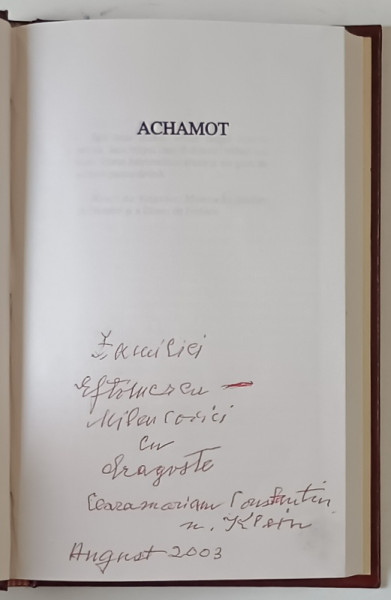 ACHAMOT
Familiei
Eftimescu —
Milencovici
cu
dragoste
Constantin
n. Klein
August 2003